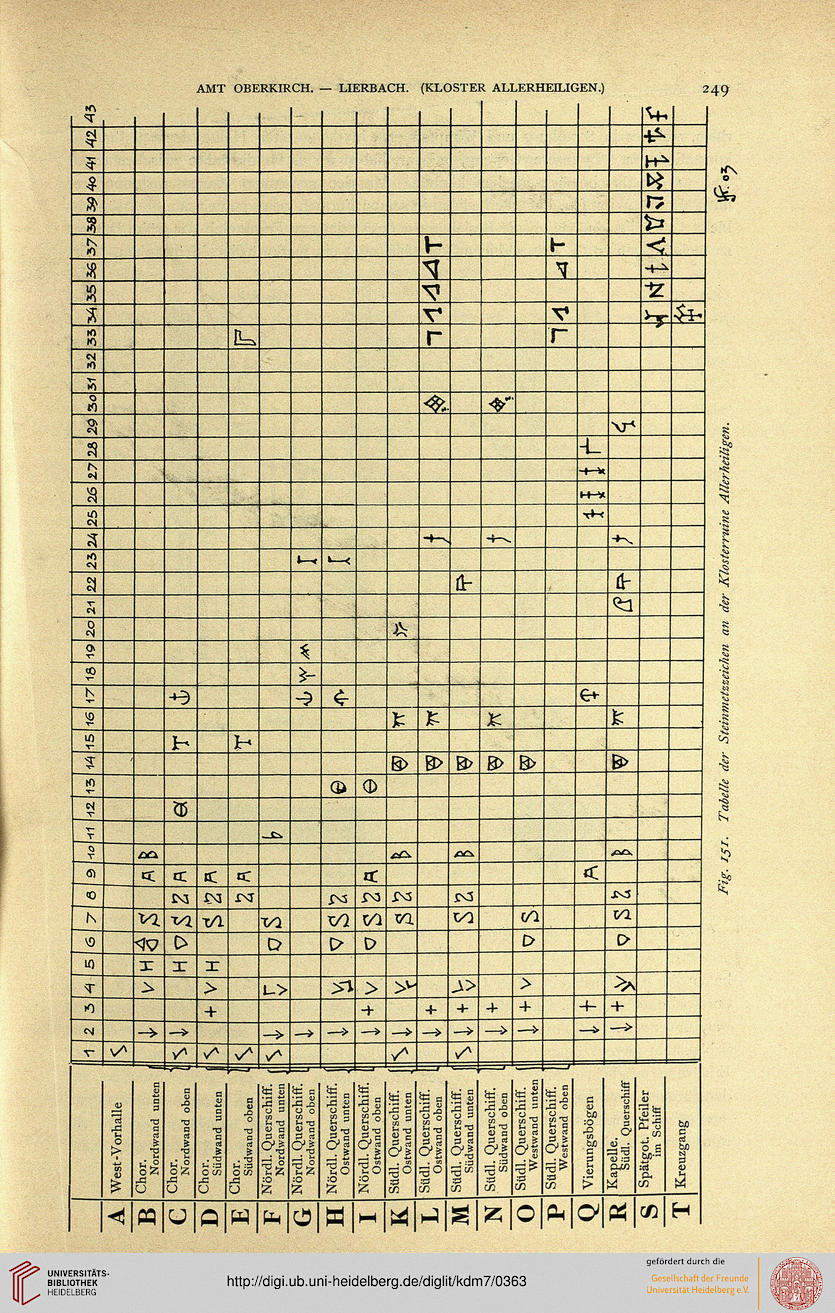 AMT OBERKIRCH. — LIERBACH. (KLOSTER ALLERHEILIGEN.)
249
1 2 3 4 5 6 7 8 9 10 11 12 13 14 15 16 17 18 19 20 21 22 23 24 25 26 27 28 29 30 31 32 33 34 35 36 37 38 39 40 41 42 43
A West-Vorhalle
B Chor.
Nordwand unten
C Chor.
Nordwand oben
D Chor.
Südwand unten
E Chor.
Südwand oben
F Nördl. Querschiff.
Nordwand unten
G Nördl. Querschiff.
Nordwand oben
H Nördl. Querschiff.
Ostwand unten
I Nördl. Querschiff.
Ostwand oben
K Südl. Querschiff.
Ostwand unten
L Südl. Querschiff.
Ostwand oben
M Südl. Querschiff.
Südwand unten
N Südl. Querschiff.
Südwand oben
O Südl. Querschiff.
Westwand unten
P Südl. Querschiff.
Westwand oben
Q Vierungsbögen
R Kapelle.
Südl. Querschiff
S Spätgot. Pfeiler
im Schiff
T Kreuzgang
03
Fig. 151. Tabelle der Steinmetzzeichen an der Klosterruine Allerheiligen.
UNIVERSITÄTS-
BIBLIOTHEK
HEIDELBERG
http://digi.ub.uni-heidelberg.de/diglit/kdm7/0363
gefördert durch die
Gesellschaft der Freunde
Universität Heidelberg e.V.